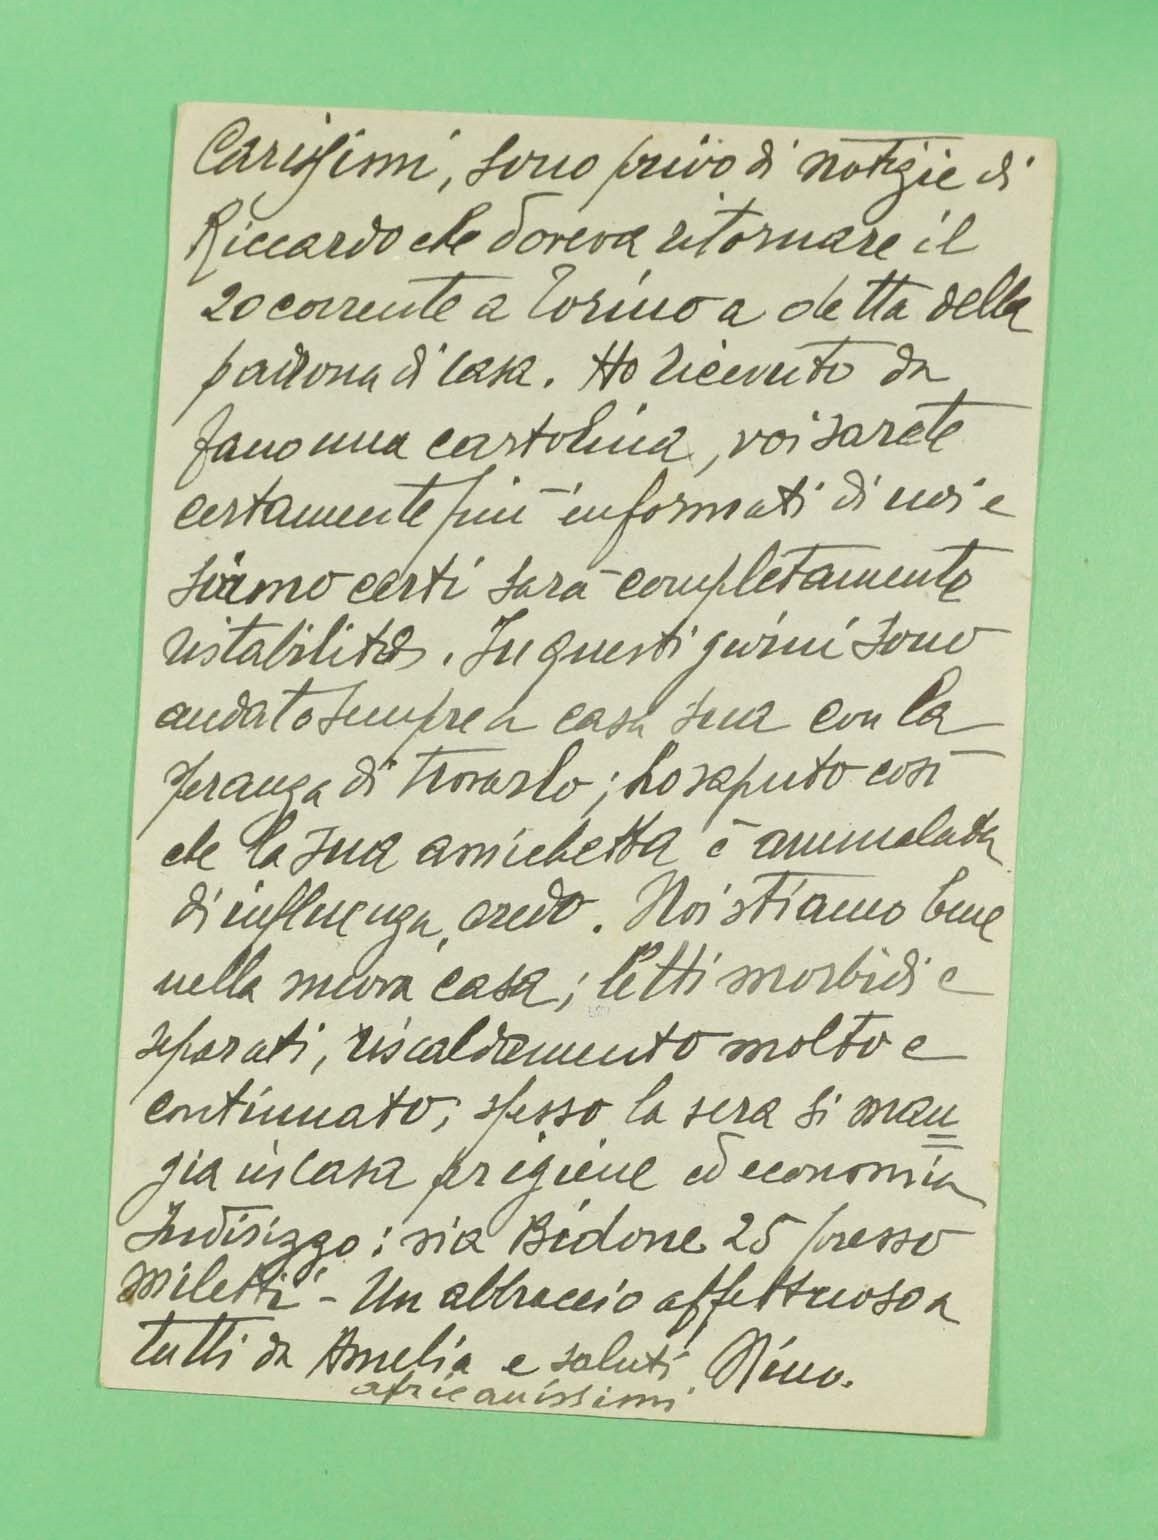 Carissimi, sono privo di notizie di
Riccardo che doveva ritornare il
20 corrente a Torino a detta della
padrona di casa. Ho ricevuto da
Fano una cartolina, voi sarete
certamente più informati di noi e
siamo certi sarà completamente
ristabilito. In questi giorni sono
andato sempre a casa sua con la
speranza di trovarlo; ho saputo così
che la sua amichetta è ammalata
di influenza, credo. Noi stiamo bene
nella nuova casa; letti morbidi e
separati, riscaldamento molto e
continuato; spesso la sera si man=
gia in casa per igiene ed economia
Indirizzo: via Bidone 25 presso
Miletti - Un abbraccio affettuoso a
tutti da Amelia e saluti Nino.
africanissimi